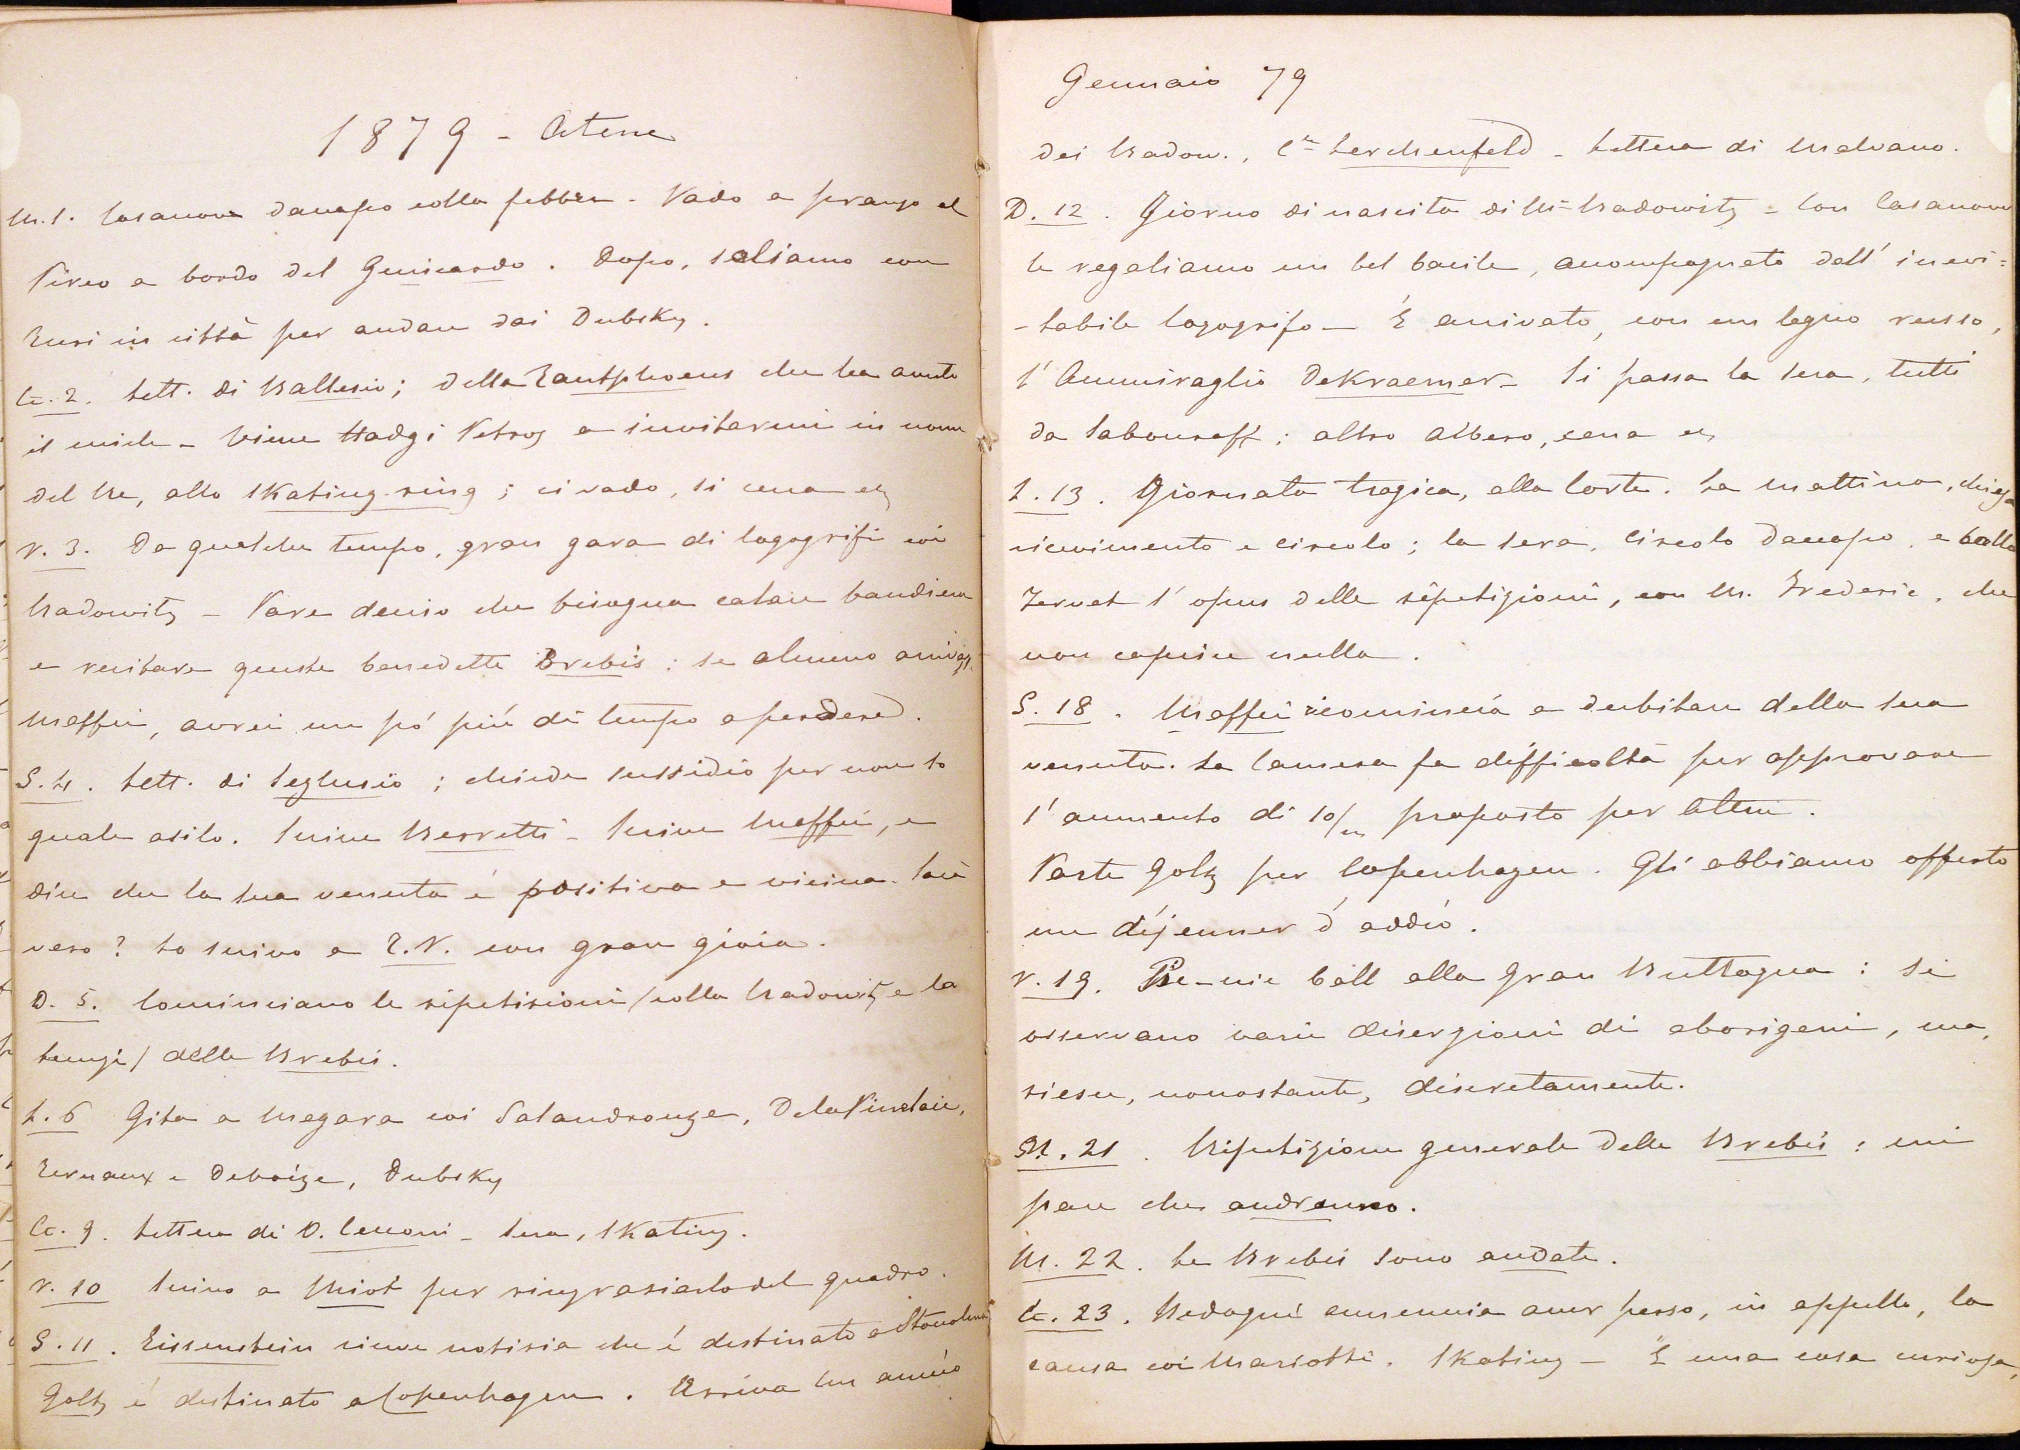 1879 - Atene
M. 1. Casanova dacapo colla febbre. Vado a pranzo al
Pireo a bordo del Guiscardo. Dopo, saliamo con
in città per andare dai Dubsky.
G. 2. Lett. di Ballesio; della che ha avuto
il mich. Viene Hadgi Petros a invitarmi in nome
del Re, allo Skating-ring; ci vado, si cena etc
V. 3. Da qualche tempo, gran gara di logogrifi coi
Radowitz - Pare deciso che bisogna calare bandiera
e recitare queste benedette Brebis: se almeno arrivasse
Maffei, avrei un pò più di tempo a perdere.
S. 4. Lett. di Seglusio; chiede sussidio per non so
quale asilo. Scrive Berretti - Scrive Maffei, e
dice che la sua venuta è positiva e vicina. Sarà
vero? Lo scrivo a con gran gioia.
D. 5. Cominciano le ripetizioni /colla Radowitz e la
/ delle Brebis.
L. 6 Gita a Megara coi Salandrouze,
e Deboize, Dubsky
G. 9. Lettera di D. Cenoni - Sera, Skating.
V. 10 Scrivo a Miot per ringraziarlo del quadro.
S. 11. Eissenstein riceve notizia che è destinato a
Goltz è destinato a Copenhagen. Arriva un amico
Gennaio 79
dei Radow., Cte Lerchenfeld - Lettera di Malvano.
D. 12. Giorno di nascita di Me Radowitz - Con Casanova
le regaliamo un bel bacile, accompagnato dall' inevi=
-tabile logogrifo - È arrivato, con un legno russo,
l'Ammiraglio DeKraemer - Si passa la sera, tutti
da Sabouroff; altro albero, cena etc
L. 13. Giornata tragica, alla Corte. La mattina, chiesa
ricevimento e circolo; la sera, circolo dacapo, e ballo
Fervet l'opus delle ripetizioni, con M. Frederic, che
non capisce nulla.
S. 18. Maffei ricomincia a dubitare della sua
venuta. La Camera fa difficoltà per approvare
l'aumento di 10/m proposto per Atene.
Parte Goltz per Copenhagen. Gli abbiamo offerto
un déjeuner d'addio.
V. 19. Pic-nic ball alla Gran Brettagna: si
osservano varie diserzioni di aborigeni, ma,
riesce, nonostante, discretamente.
M. 21. Ripetizione generale delle Brebis: mi
pare che andranno.
M. 22. Le Brebis sono andate.
G. 23. annuncia aver perso, in appello, la
causa coi Mariotti. Skating - È una cosa curiosa,